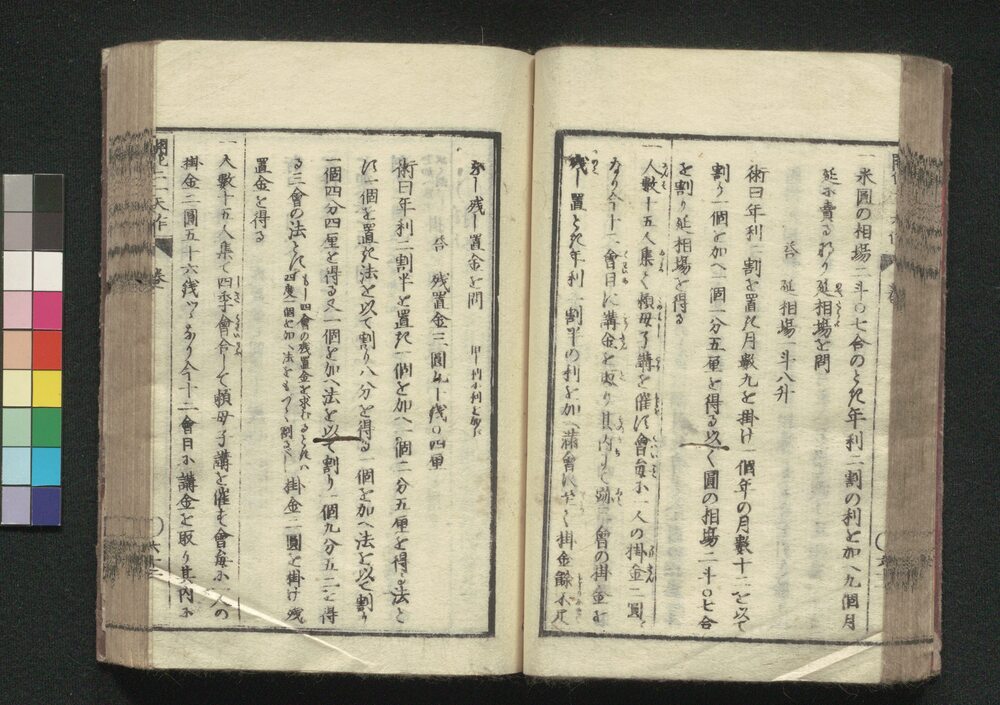 一米圓の相場二斗〇七合のとき年利二割の利を加へ九個月
延に賣るあり延相場を問
答 延相場一斗八升
術曰年利二割を置き月數九を掛け一個年の月數十二を以て
割り一個を加へ一個一分五厘を得る以て圓の相場二斗〇七合
を割り延相場を得る
一人數十五人集て頼母子講を催す會每に一人の掛金二圓
なり今十二會目に講金を取り其內にて 三會の掛金を
残し置とき年利二割半の利を加へ滿會にて 掛金 不足
なし残し置金を問
答 残置金三圓九十銭〇四厘
術曰年利二割半を置き一個を加へ一個二分五厘を得る法と
す一個を置き法を以て割り八分を得る一個を加へ法を以て割り
一個四分四厘を得る又一個を加へ法を以て割り一個九分五二を得
る三會の法とす もし四會の残置金を求むるときは四度一個を加へ法をもつて割るべし 掛金二圓を掛け残
置金を得る
一人數十五人集て四季會合して頼母子講を催す會每に一人の
掛金二圓五十六銭づゝなり今十二會目に講金を取り其內に
卷